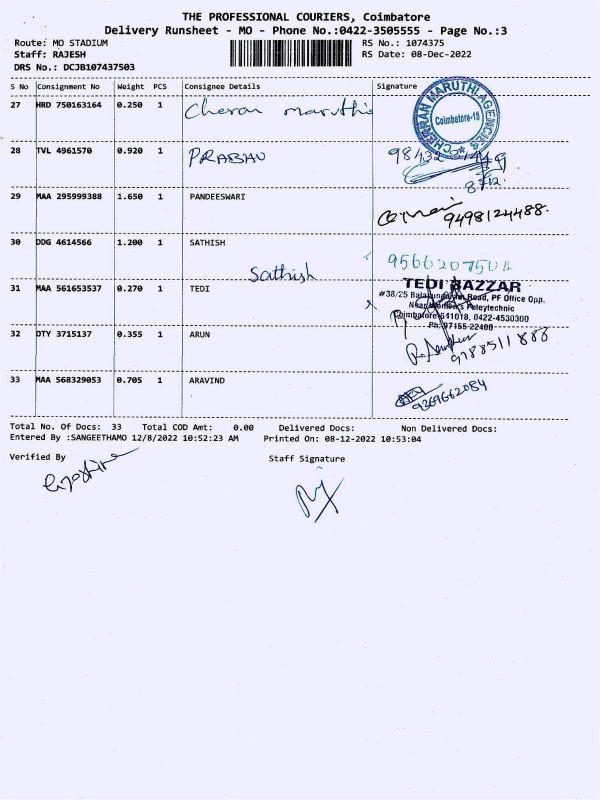 THE PROFESSIONAL COURIERS, Coimbatore
Delivery Runsheet - MO - Phone No.:0422-3505555 - Page No.:3
Route: MO STADIUM RS No.: 1074375
Staff: RAJESH RS Date: 08-Dec-2022
DRS No.: DCJB107437503
S No Consignment No Weight PCS Consignee Details Signature
27 HRD 750163164 0.250 1 Cheran maruthi
CHERRAN MARUTHI AGENCIES
Coimbatore-18
28 TVL 4961570 0.920 1 PRABHU
8/12.
29 MAA 295999388 1.650 1 PANDEESWARI
9498124488.
30 DDG 4614566 1.200 1 SATHISH
Sathish
TEDI BAZZAR
#38/25 Road, PF Office Opp,
Near Women's Poleytechnic
Coimbatore-641018, 0422-4530300
Ph: 97155 22400
31 MAA 561653537 0.270 1 TEDI
32 DTY 3715137 0.355 1 ARUN
9788511888
33 MAA 568329053 0.705 1 ARAVIND
9361662084
Total No. Of Docs: 33 Total COD Amt: 0.00 Delivered Docs: Non Delivered Docs:
Entered By :SANGEETHAMO 12/8/2022 10:52:23 AM Printed On: 08-12-2022 10:53:04
Verified By Staff Signature